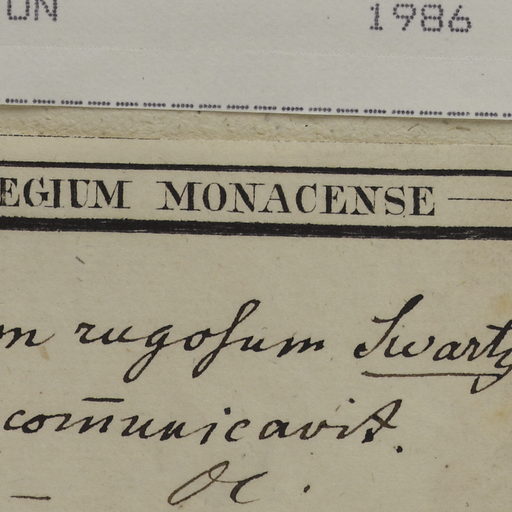 ON 1986
EGIUM MONACENSE
m rugosum Swartz
com̅unicavit.